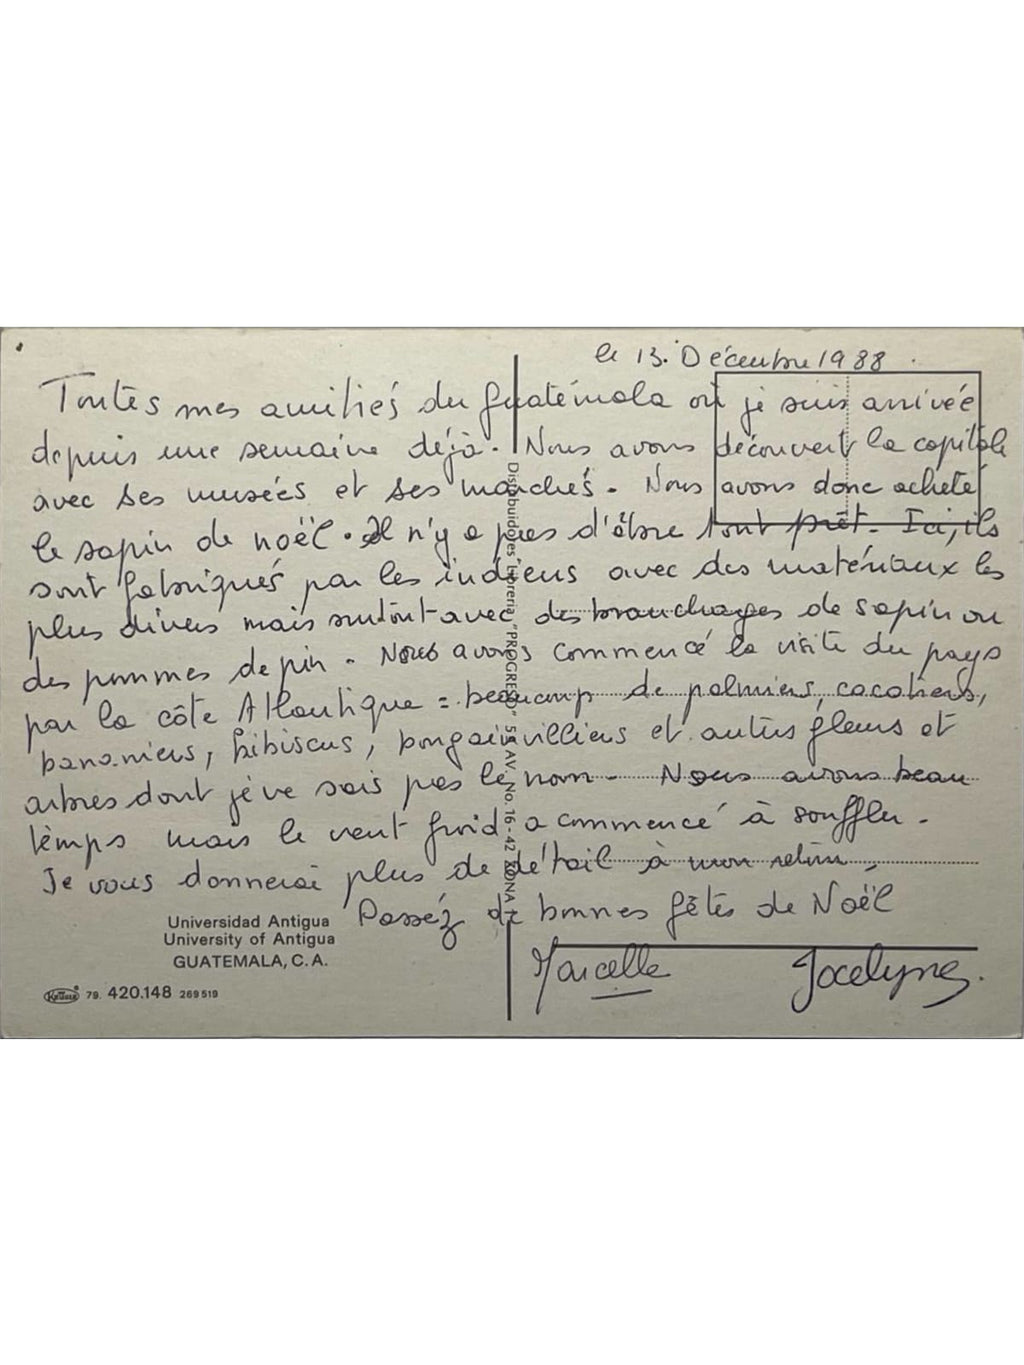 le 13. Décembre 1988.
Toutes mes amitiés du Guatémala où je suis arrivée
depuis une semaine déjà. Nous avons découvert la capitale
avec ses musées et ses marchés. Nous avons donc acheté
le sapin de noël. Il n'y a pas d'être tout prêt. Ici, ils
sont fabriqués par les indiens avec des matériaux les
plus divers mais surtout avec des branchages de sapin ou
des pommes de pin. Nous avons commencé la visite du pays
par la côte Atlantique = beaucoup de palmiers, cocotiers,
bananiers, hibiscus, bougainvilliers et autres fleurs et
arbres dont je ne sais pas le nom. Nous avons beau
temps mais le vent froid a commencé à souffler.
Je vous donnerai plus de détail à mon retour,
Passéz de bonnes fêtes de Noël
Marcelle Jocelyne.
Distribuidores Librería "PROGRESO" 5a. AV. No. 16-42 ZONA 1
Universidad Antigua
University of Antigua
GUATEMALA, C. A.
79. 420.148 269519